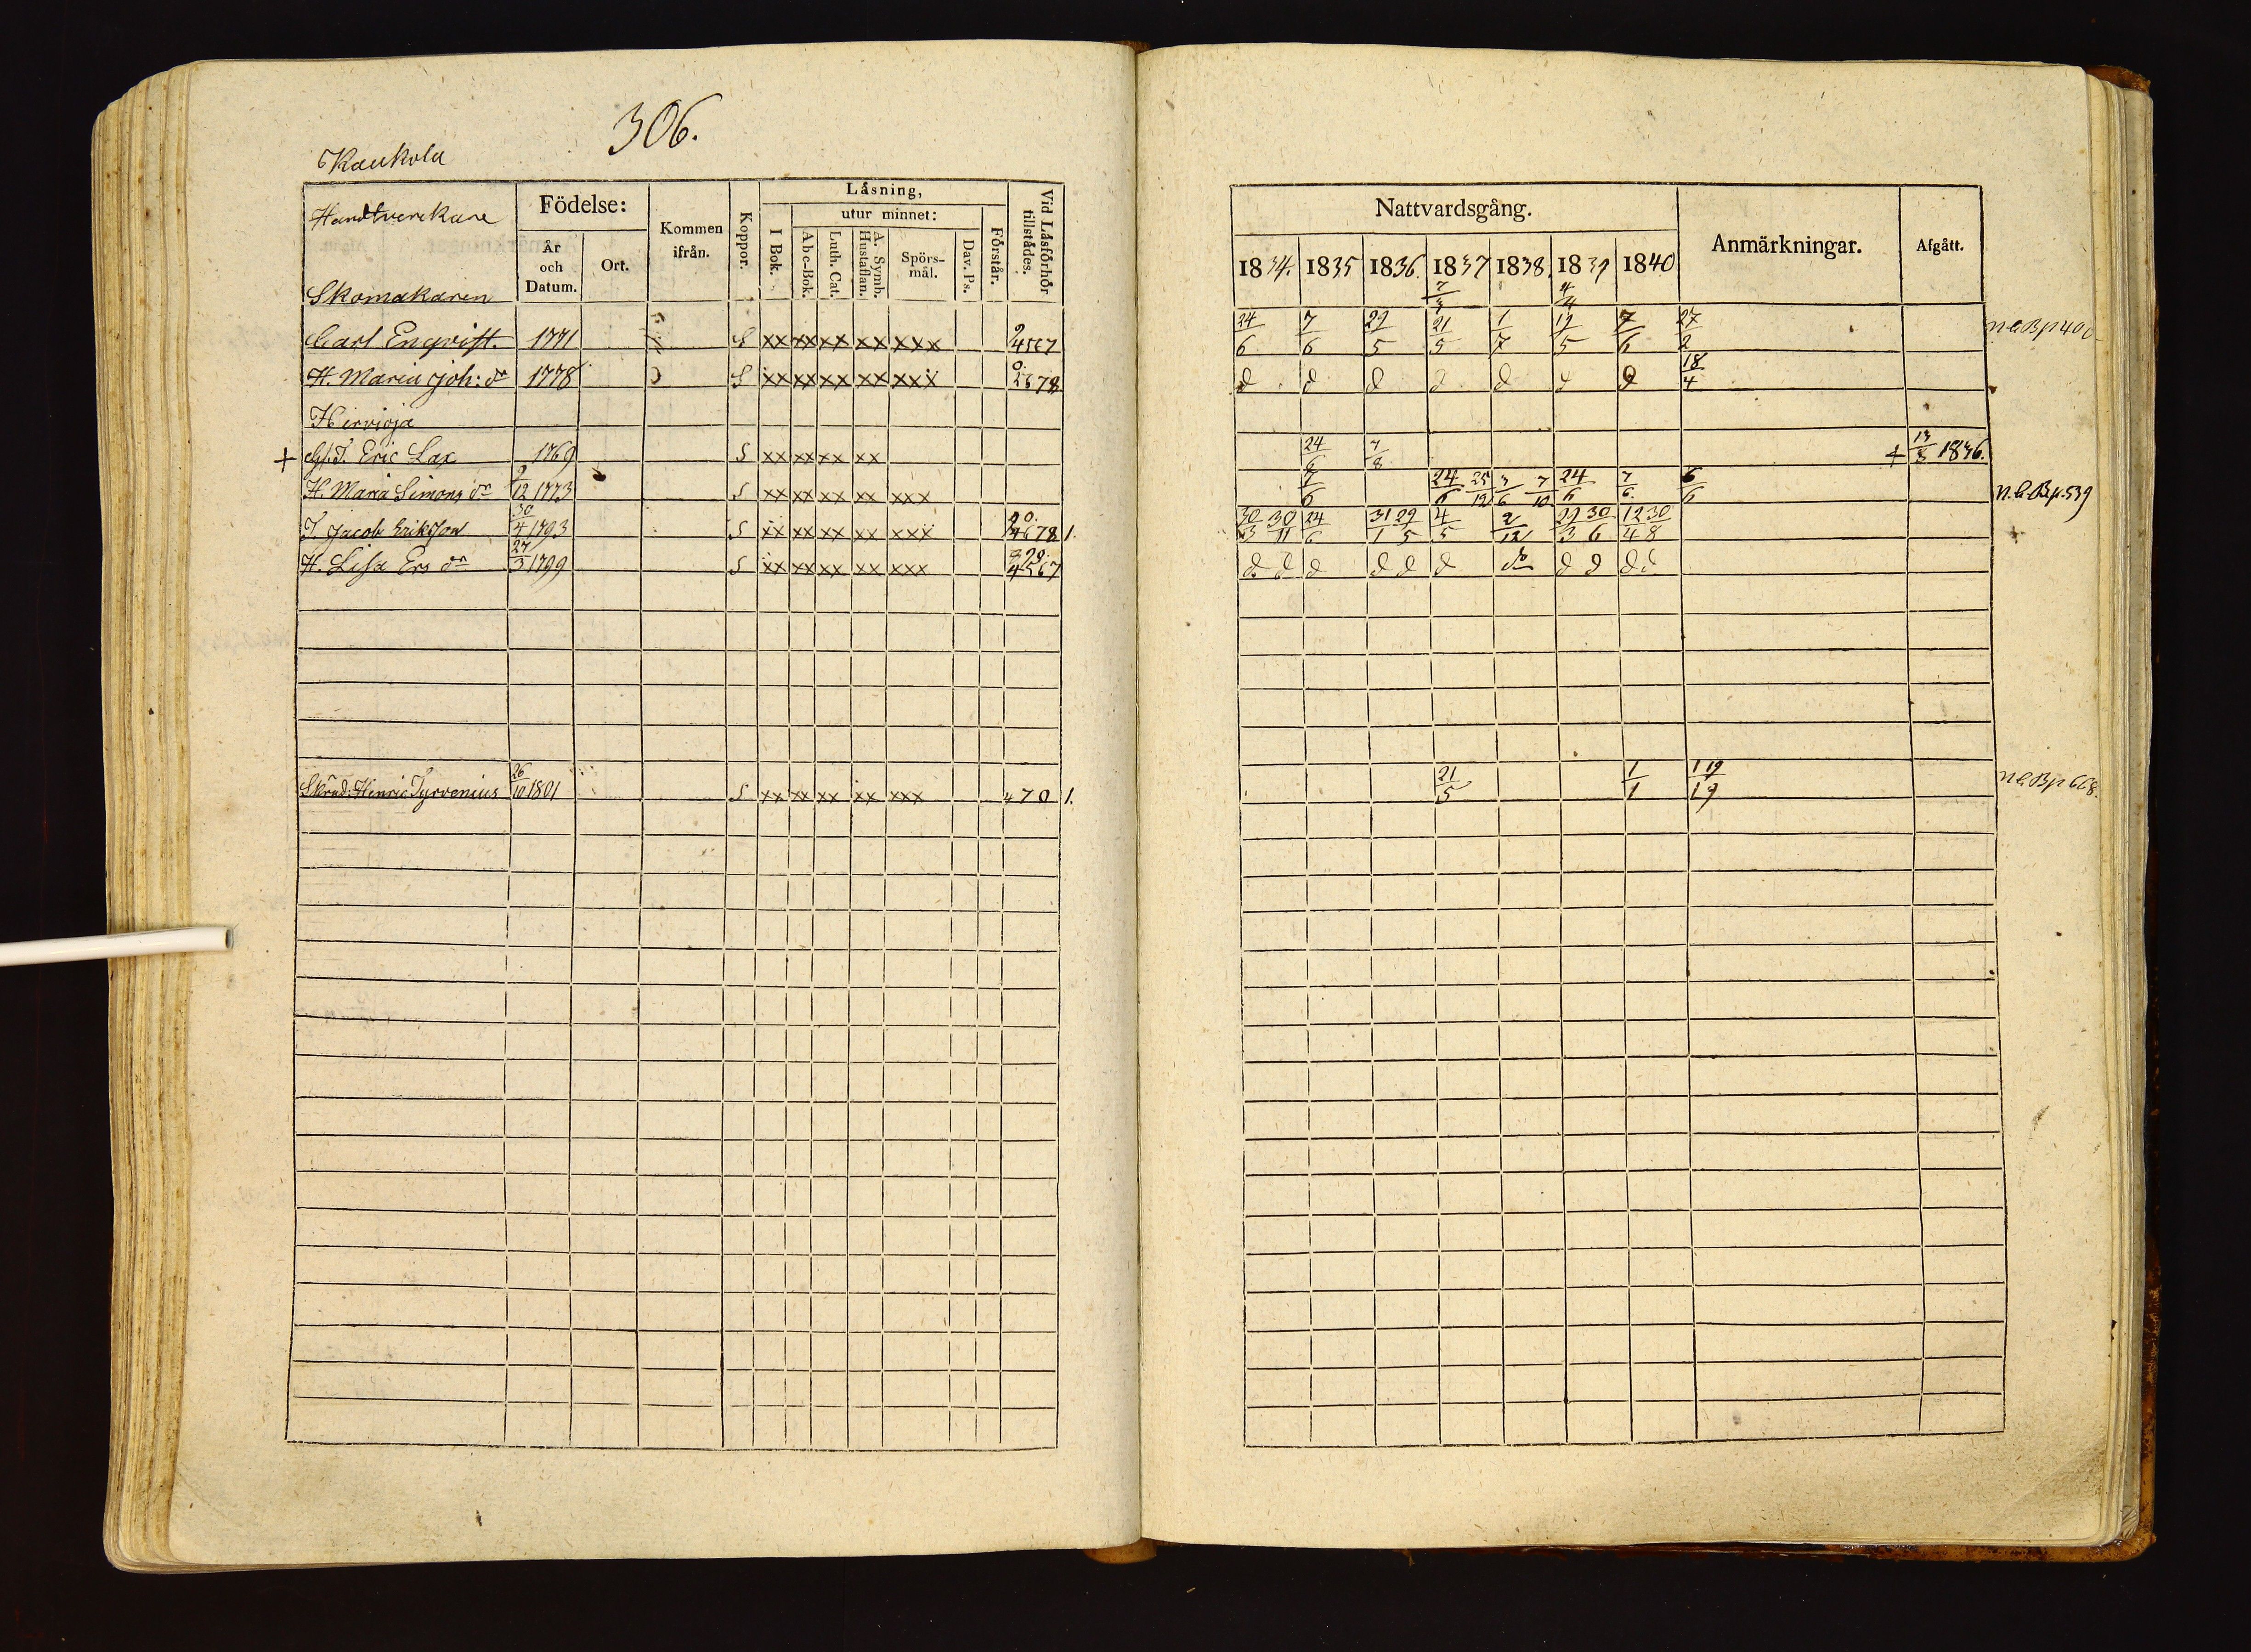 306.
Kaukola
Handtverekare
Skomakaren
Födelse:
År och Datum.
Ort.
Kommen ifrån.
Koppor.
Läsning,
utur minnet:
I Bok.
Abc-Bok.
Luth. Cat.
A. Symb. Hustaflan.
Spörs-mål.
Dav. Ps.
Förstår.
Vid Läsförhör tillstädes.
Carl Enqvist. 1771 S xx xx xx xx xxx 2 4567
H. Maria Joh: dr 1778 S xx xx xx xx xxx 0 2678
Hirvioja
+ Eric Lax 1769 S xx xx xx xx
H. Maria Simons dr 9/12 1773 S xx xx xx xx xxx
T. Jacob Eriksson 30/4 1793 S xx xx xx xx xxx 20. 4678 1.
H. Lisa Ers dr 27/3 1799 S xx xx xx xx xxx 4567
Skräd: Henric Tyrvenius 26/10 1801 S xx xx xx xx xxx 470 1.
Nattvardsgång.
Anmärkningar.
Afgått.
1834. 1835 1836. 1837 1838. 1839 1840
7/3 4/4
24/6 7/6 29/5 21/5 1/7 19/5 7/6 27/2 n.e.B.p 400
d d d d d d d 18/4
24/6 7/8 + 13/8 1836.
7/6 24/6 25/12 3/6 7/10 24/6 7/6 6/6 n.e.B.p. 539
30/3 30/11 24/6 31/1 29/5 4/5 2/12 29/3 30/6 12/4 30/8
d d d d d d do d d d d
21/5 1/1 1 19/19 n.e.B.p 668.